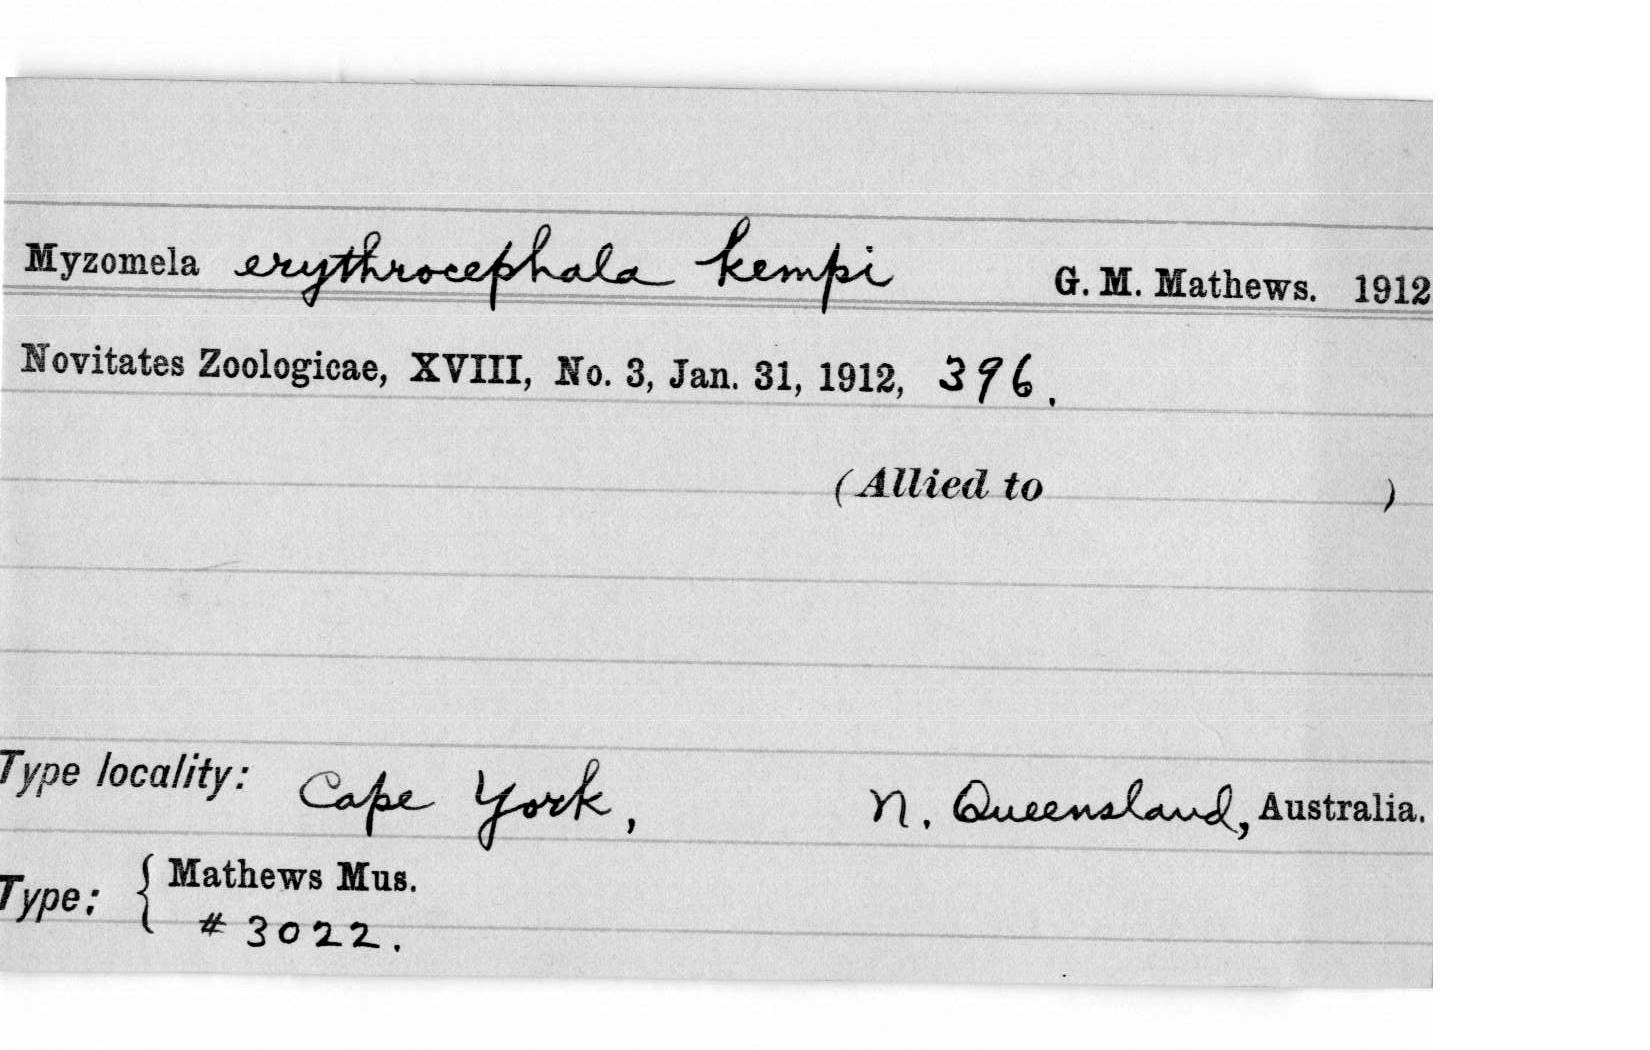 Myzomela erythrocephala kempi G. M. Mathews. 1912
Novitates Zoologicae, XVIII, No. 3, Jan. 31, 1912, 396.
(Allied to )
Type locality: Cape York, N. Queensland, Australia.
Type: { Mathews Mus.
# 3022.